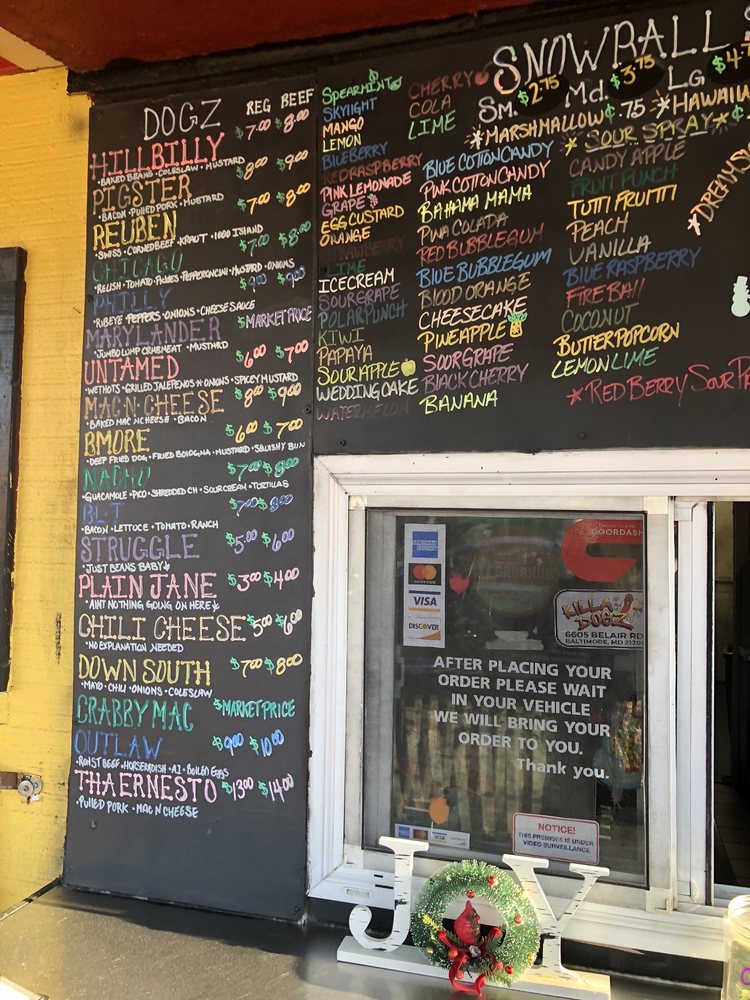 DOGZ REG BEEF
$7.00 $8.00
HILLBILLY
•BAKED BEANS•COLESLAW•MUSTARD
PIGSTER $8.00 $9.00
•BACON•PULLED PORK•MUSTARD
REUBEN $7.00 $8.00
•SWISS•CORNED BEEF•KRAUT•1000 ISLAND
CHICAGO $7.00 $8.00
RELISH•TOMATO•PICKLES•PEPPERONCINI•MUSTARD•ONIONS
PHILLY $9.00 $9.00
•RIBEYE•PEPPERS•ONIONS•CHEESE SAUCE
MARYLANDER $MARKET PRICE
•JUMBO LUMP CRABMEAT•MUSTARD
UNTAMED $6.00 $7.00
•WET HOTS•GRILLED JALEPENOS N ONIONS•SPICEY MUSTARD
MAC N CHEESE $8.00 $9.00
•BAKED MAC N CHEESE•BACON
BMORE $6.00 $7.00
•DEEP FRIED DOG•FRIED BOLOGNA•MUSTARD•SQUISHY BUN
NACHO $7.00 $8.00
•GUACAMOLE•PICO•SHREDDED CH•SOUR CREAM•TORTILLAS
BLT $7.00 $8.00
BACON•LETTUCE•TOMATO•RANCH
STRUGGLE $5.00 $6.00
"JUST BEANS BABY
PLAIN JANE $3.00 $4.00
"AINT NOTHING GOING ON HERE
CHILI CHEESE $5.00 $6.00
"NO EXPLANATION NEEDED
DOWN SOUTH $7.00 $8.00
•MAYO•CHILI•ONIONS•COLESLAW
CRABBY MAC $MARKET PRICE
OUTLAW $9.00 $10.00
•ROAST BEEF•HORSERADISH•A.1•BOILED EGGS
THA ERNESTO $13.00 $14.00
•PULLED PORK•MAC N CHEESE
SNOWBALL
Sm. $2.75 Md. $3.75 Lg $4.
*MARSHMALLOW ¢.75 *HAWAII
*SOUR SPRAY*
SPEARMINT
SKYLIGHT
MANGO
LEMON
BLUEBERRY
RED RASPBERRY
PINK LEMONADE
GRAPE
EGG CUSTARD
ORANGE
STRAWBERRY
LIME
ICE CREAM
SOUR GRAPE
POLAR PUNCH
KIWI
PAPAYA
SOUR APPLE
WEDDING CAKE
WATERMELON
CHERRY
COLA
LIME
BLUE COTTON CANDY
PINK COTTON CANDY
BAHAMA MAMA
PINA COLADA
RED BUBBLEGUM
BLUE BUBBLEGUM
BLOOD ORANGE
CHEESECAKE
PINEAPPLE
SOUR GRAPE
BLACK CHERRY
BANANA
CANDY APPLE
FRUIT PUNCH
TUTTI FRUITTI
PEACH
VANILLA
BLUE RASPBERRY
FIRE BALL
COCONUT
BUTTER POPCORN
LEMON LIME
*DREAMS
*RED BERRY SOUR
AMERICAN EXPRESS
mastercard
VISA
DISCOVER
DOORDASH
KILLA DOGZ
6605 BELAIR RD
BALTIMORE, MD 2120
AFTER PLACING YOUR
ORDER PLEASE WAIT
IN YOUR VEHICLE
WE WILL BRING YOUR
ORDER TO YOU.
Thank you.
NOTICE!
THIS PREMISES IS UNDER
VIDEO SURVEILLANCE
VISA
JOY